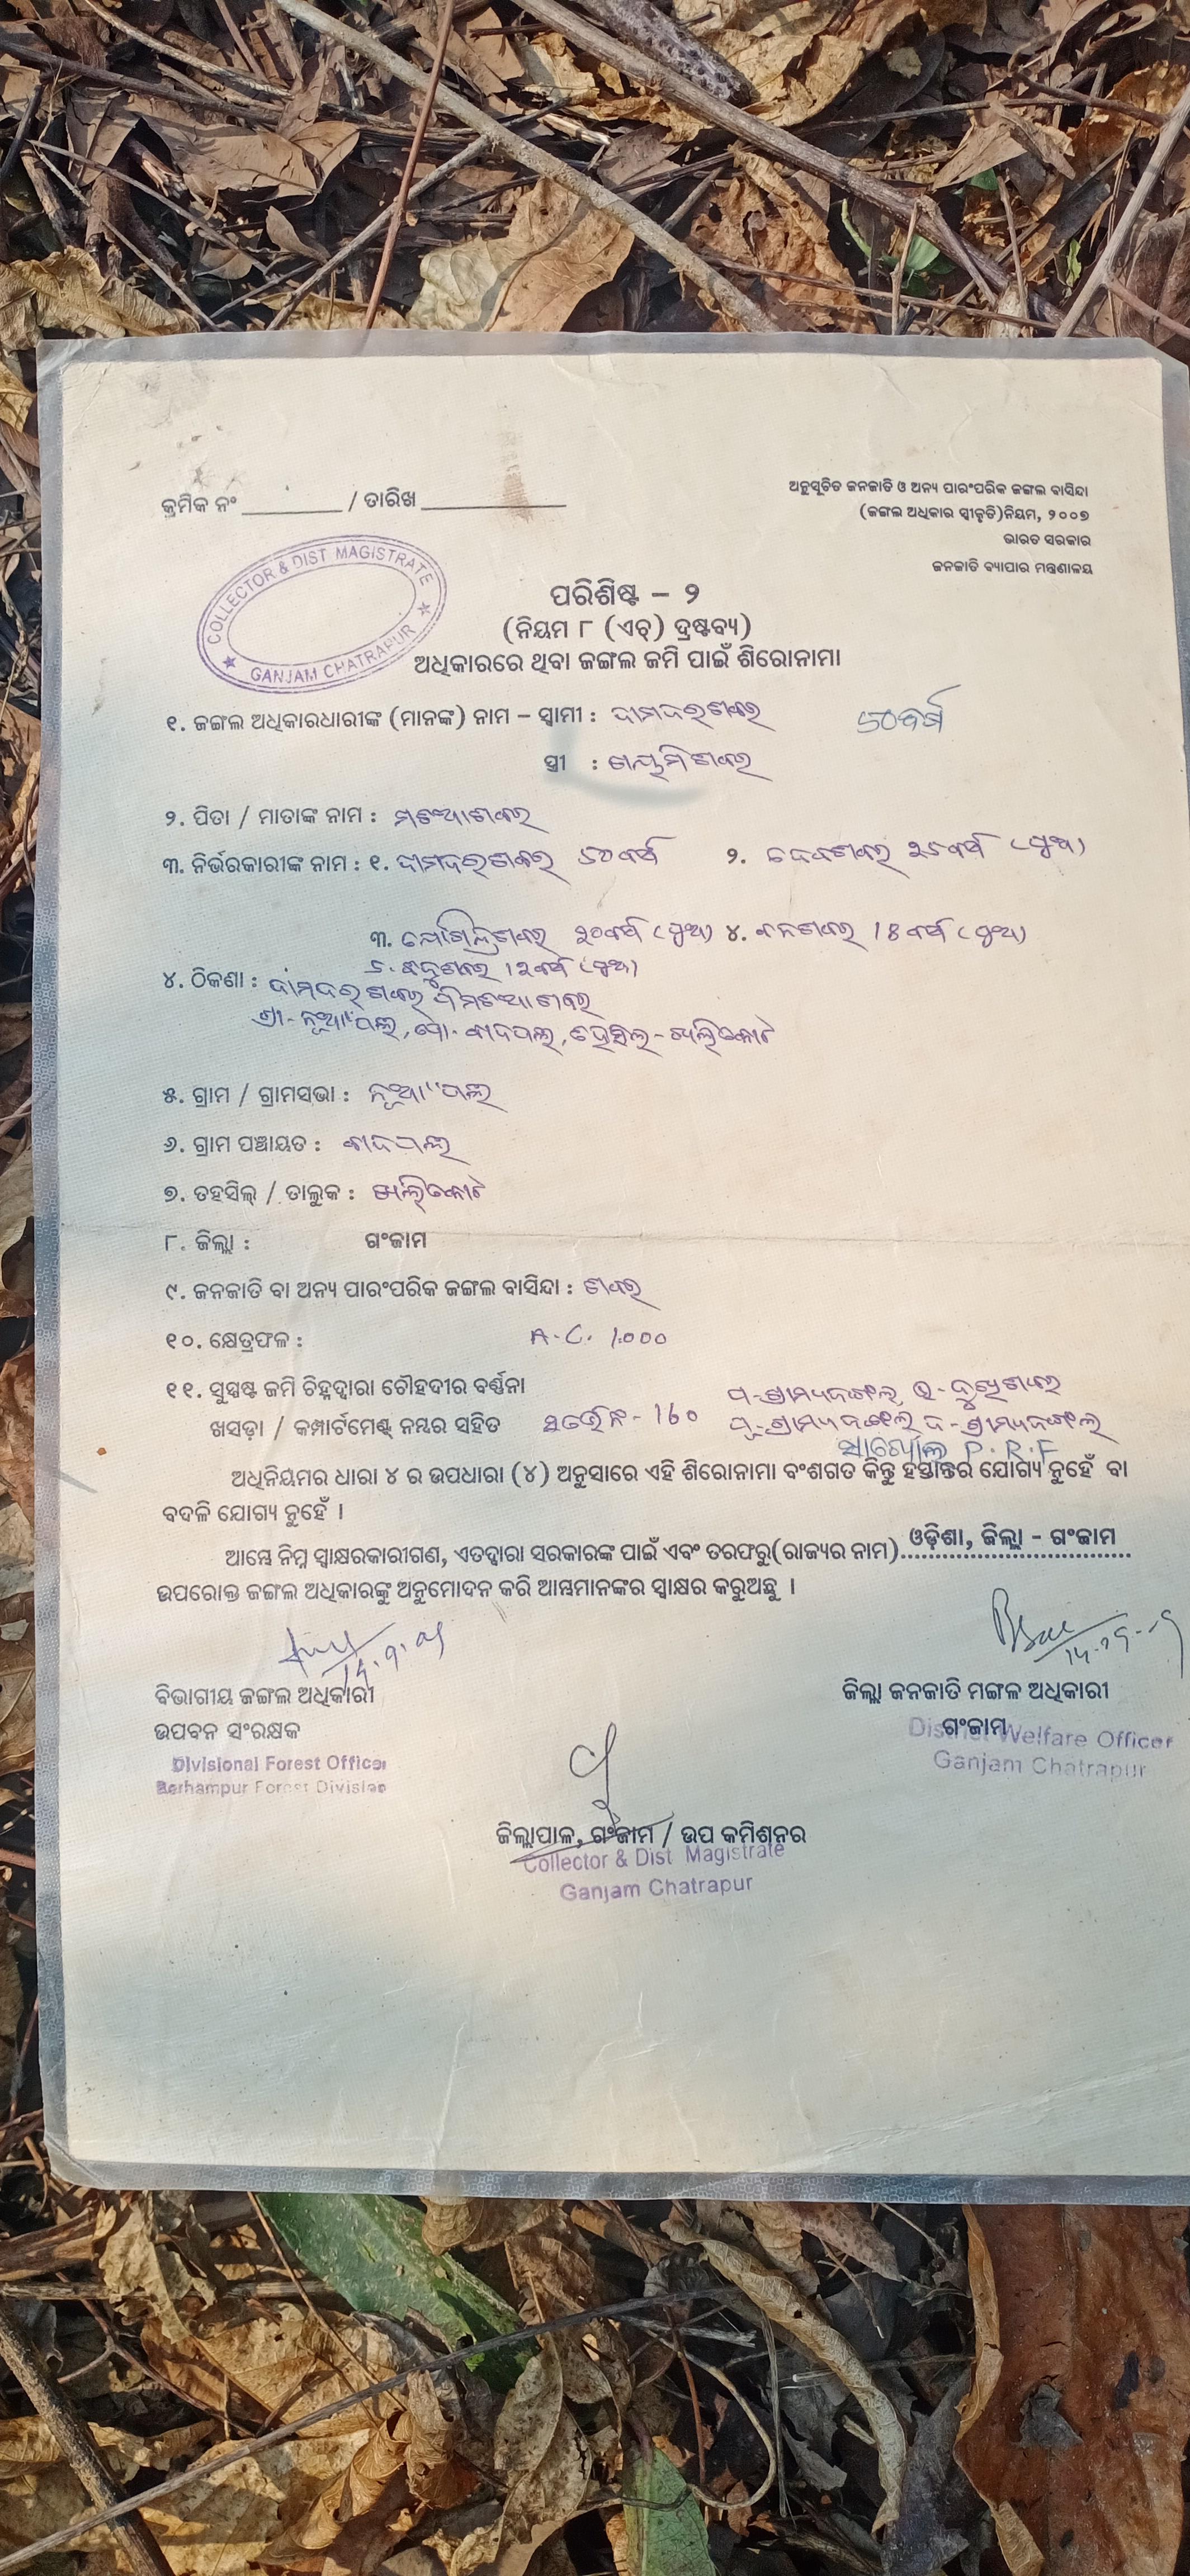 କ୍ରମିକ ନଂ ________ / ତାରିଖ ____________
ଅନୁସୂଚିତ ଜନଜାତି ଓ ଅନ୍ୟ ପାରଂପରିକ ଜଙ୍ଗଲ ବାସିନ୍ଦା
(ଜଙ୍ଗଲ ଅଧିକାର ସ୍ୱୀକୃତି)ନିୟମ, ୨୦୦୭
ଭାରତ ସରକାର
ଜନଜାତି ବ୍ୟାପାର ମନ୍ତ୍ରଣାଳୟ
COLLECTOR & DIST MAGISTRATE
GANJAM CHATRAPUR
ପରିଶିଷ୍ଟ – ୨
(ନିୟମ ୮ (ଏଚ୍) ଦ୍ରଷ୍ଟବ୍ୟ)
ଅଧିକାରରେ ଥିବା ଜଙ୍ଗଲ ଜମି ପାଇଁ ଶିରୋନାମା
୧. ଜଙ୍ଗଲ ଅଧିକାରଧାରୀଙ୍କ (ମାନଙ୍କ) ନାମ – ସ୍ୱାମୀ : ଦାମଦର ଶବର ୫୦ବର୍ଷ
ସ୍ତ୍ରୀ : ଶବର
୨. ପିତା / ମାତାଙ୍କ ନାମ : ଶବର
୩. ନିର୍ଭରକାରୀଙ୍କ ନାମ : ୧. ଦାମଦର ଶବର ୫୦ବର୍ଷ ୨. ଶବର ୨୫ବର୍ଷ (ପୁଅ)
୩. ଶବର ୨୦ବର୍ଷ (ପୁଅ) ୪. ଶବର 18ବର୍ଷ (ପୁଅ)
୫. ଶବର ୧୨ବର୍ଷ (ପୁଅ)
୪. ଠିକଣା : ଦାମଦର ଶବର ଶବର
ଗ୍ରା- ନୂଆପଲ୍ଲୀ, ପୋ- ତହସିଲ- ଖଲିକୋଟ
୫. ଗ୍ରାମ / ଗ୍ରାମସଭା : ନୂଆପଲ୍ଲୀ
୬. ଗ୍ରାମ ପଞ୍ଚାୟତ :
୭. ତହସିଲ୍ / ତାଲୁକ : ଖଲିକୋଟ
୮. ଜିଲ୍ଲା : ଗଂଜାମ
୯. ଜନଜାତି ବା ଅନ୍ୟ ପାରଂପରିକ ଜଙ୍ଗଲ ବାସିନ୍ଦା : ଶବର
୧୦. କ୍ଷେତ୍ରଫଳ : A.C. 1.000
୧୧. ସୁସ୍ପଷ୍ଟ ଜମି ଚିହ୍ନଦ୍ୱାରା ଚୌହଦୀର ବର୍ଣ୍ଣନା ପ-ଗ୍ରାମ୍ୟଜଙ୍ଗଲ, ଉ- ଶବର
ଖସଡ଼ା / କମ୍ପାର୍ଟମେଣ୍ଟ୍ ନମ୍ବର ସହିତ 160 ପୂ-ଗ୍ରାମ୍ୟଜଙ୍ଗଲ ଦ-ଗ୍ରାମ୍ୟଜଙ୍ଗଲ
P.R.F
ଅଧିନିୟମର ଧାରା ୪ ର ଉପଧାରା (୪) ଅନୁସାରେ ଏହି ଶିରୋନାମା ବଂଶଗତ କିନ୍ତୁ ହସ୍ତାନ୍ତର ଯୋଗ୍ୟ ନୁହେଁ ବା
ବଦଳି ଯୋଗ୍ୟ ନୁହେଁ ।
ଆମ୍ଭେ ନିମ୍ନ ସ୍ୱାକ୍ଷରକାରୀଗଣ, ଏତଦ୍ୱାରା ସରକାରଙ୍କ ପାଇଁ ଏବଂ ତରଫରୁ(ରାଜ୍ୟର ନାମ) ଓଡ଼ିଶା, ଜିଲ୍ଲା - ଗଂଜାମ
ଉପରୋକ୍ତ ଜଙ୍ଗଲ ଅଧିକାରଙ୍କୁ ଅନୁମୋଦନ କରି ଆମ୍ଭମାନଙ୍କର ସ୍ୱାକ୍ଷର କରୁଅଛୁ ।
ବିଭାଗୀୟ ଜଙ୍ଗଲ ଅଧିକାରୀ
ଉପବନ ସଂରକ୍ଷକ
Divisional Forest Officer
Berhampur Forest Division
ଜିଲ୍ଲା ଜନଜାତି ମଙ୍ଗଳ ଅଧିକାରୀ
ଗଂଜାମ
District Welfare Officer
Ganjam Chatrapur
ଜିଲ୍ଲାପାଳ, ଗଂଜାମ / ଉପ କମିଶ୍ନର
Collector & Dist Magistrate
Ganjam Chatrapur